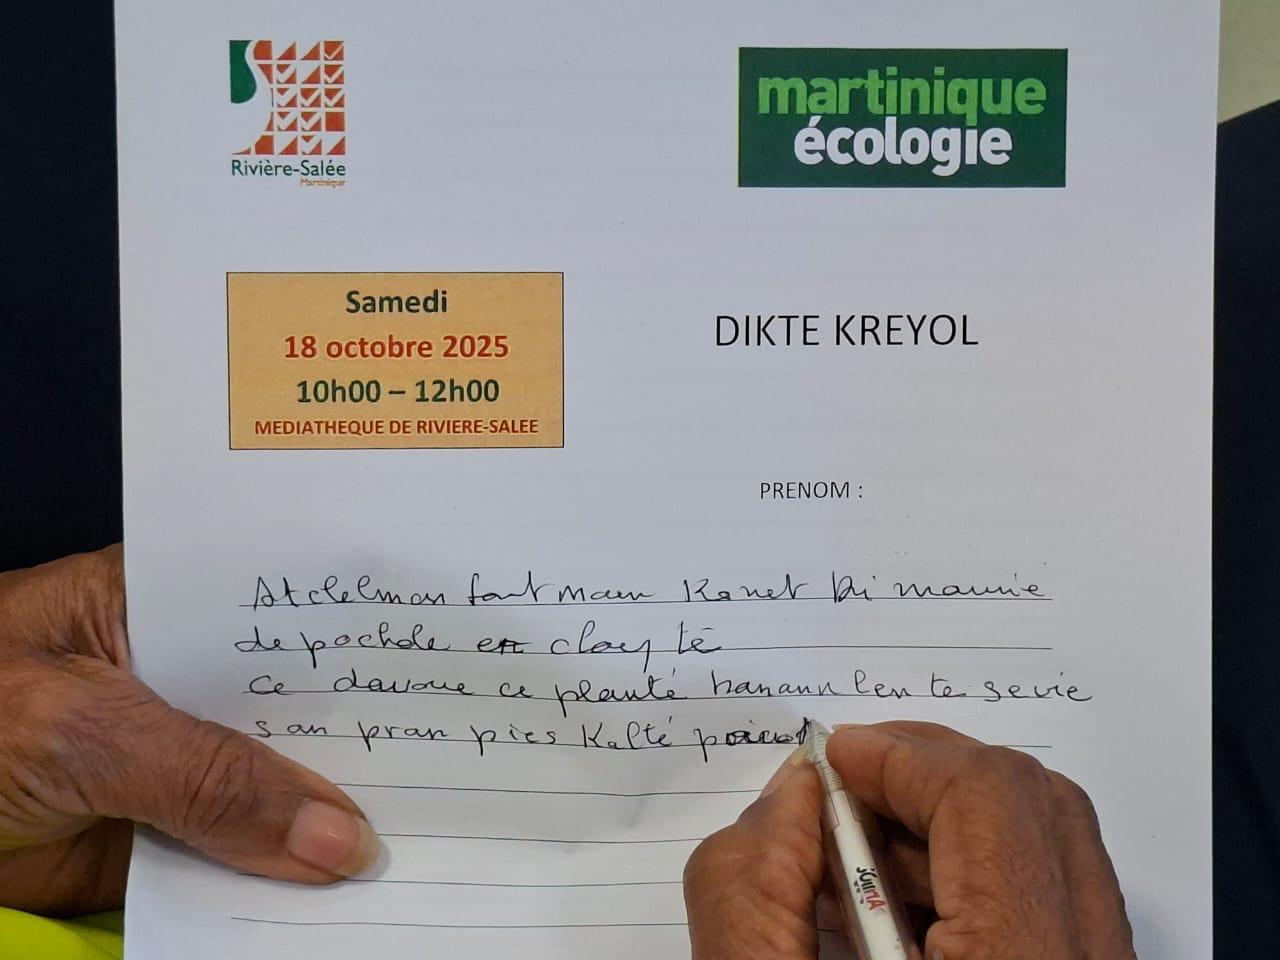 Rivière-Salée
Martinique
martinique
écologie
Samedi
18 octobre 2025
10h00 – 12h00
MEDIATHEQUE DE RIVIERE-SALEE
DIKTE KREYOL
PRENOM :
Kanet Di
de pochole en té
ce davoue ce planté banann len te sevie
san pran pies Kalté